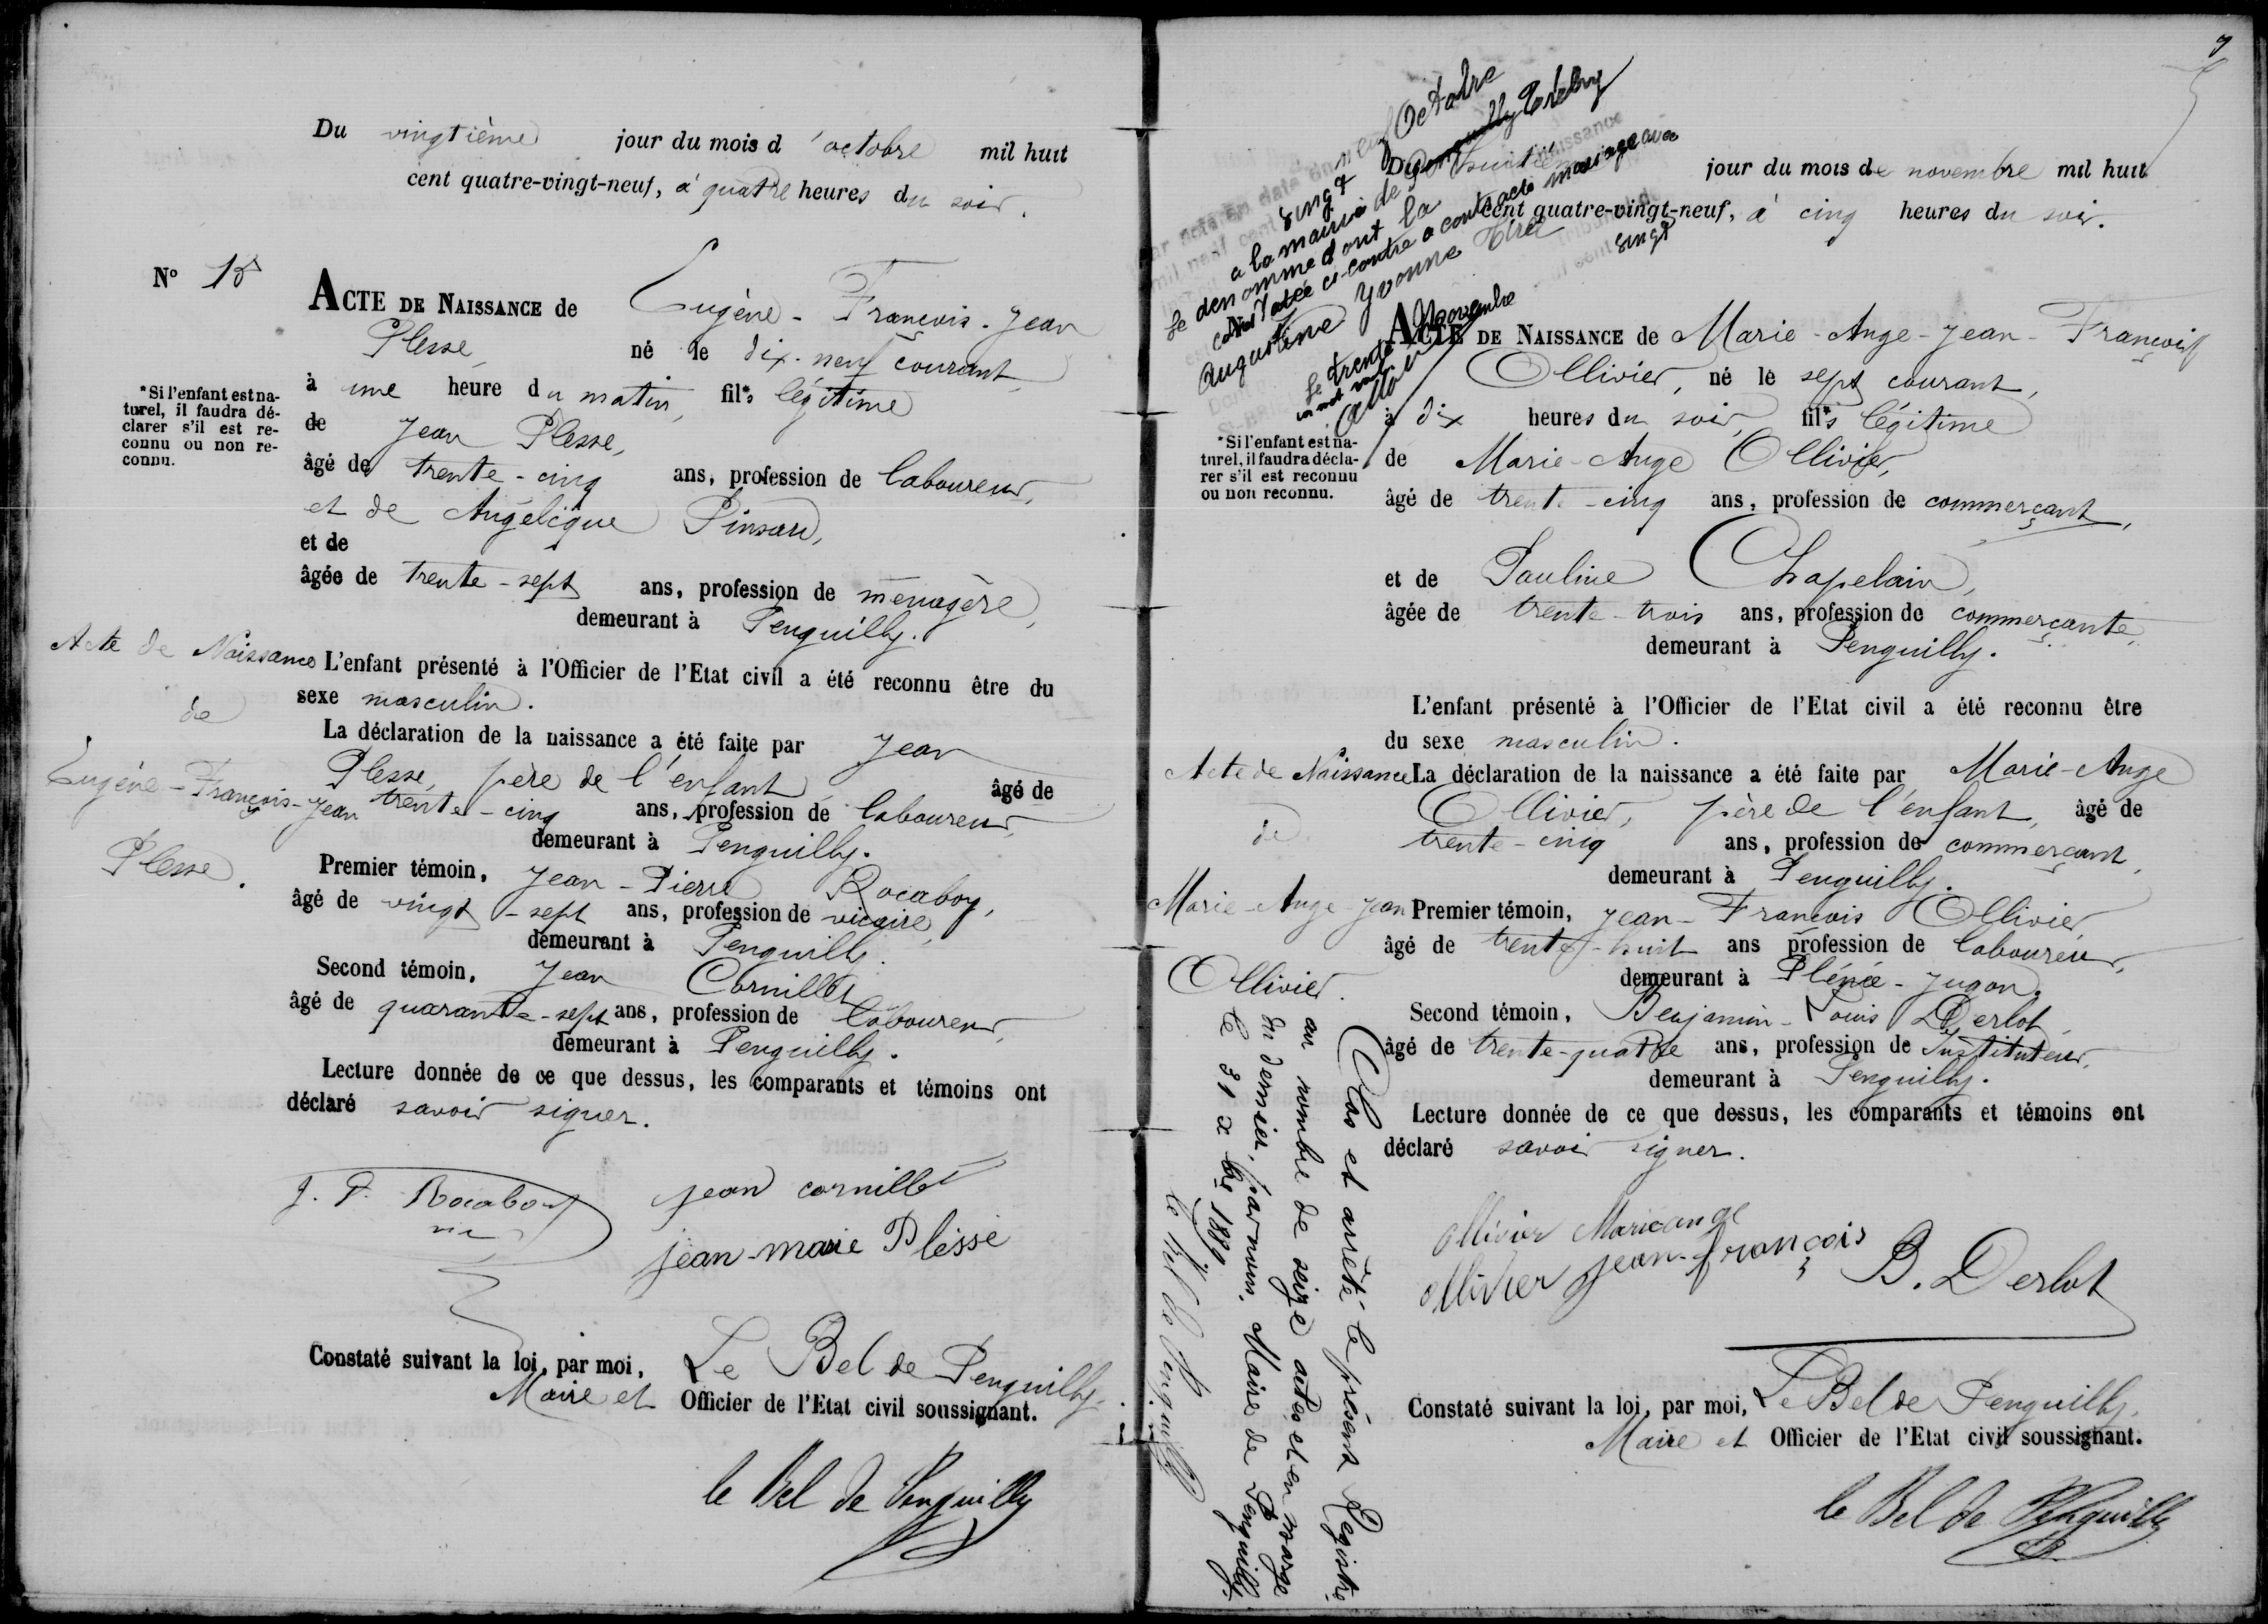 Du vingtième jour du mois d'octobre mil huit
cent quatre-vingt-neuf, à quatre heures du soir.
N° 15
ACTE DE NAISSANCE de Eugène-François-Jean
Plesse, né le dix-neuf courant,
à une heure du matin, fils légitime
*Si l'enfant est na-
turel, il faudra dé-
clarer s'il est re-
connu ou non re-
connu.
de Jean Plesse,
âgé de trente-cinq ans, profession de laboureur,
et de Angélique Pinsard,
et de
âgée de trente-sept ans, profession de ménagère,
demeurant à Penguilly.
Acte de Naissance
de
Eugène-François-Jean
Plesse.
L'enfant présenté à l'Officier de l'Etat civil a été reconnu être du
sexe masculin.
La déclaration de la naissance a été faite par Jean
Plesse, père de l'enfant âgé de
trente-cinq ans, profession de laboureur,
demeurant à Penguilly.
Premier témoin, Jean-Pierre Rocaboy,
âgé de vingt-sept ans, profession de vicaire,
demeurant à Penguilly.
Second témoin, Jean Cornillet
âgé de quarante-sept ans, profession de laboureur,
demeurant à Penguilly.
Lecture donnée de ce que dessus, les comparants et témoins ont
déclaré savoir signer.
J. P. Rocaboy
vic
jean cornillet
jean-marie Plessé
Constaté suivant la loi, par moi, Le Bel de Penguilly,
Maire et Officier de l'Etat civil soussignant.
le Bel de Penguilly
Du huitième jour du mois de novembre mil huit
cent quatre-vingt-neuf, à cinq heures du soir.
neuf Octobre
vingt
a la mairie de Penguilly Trébry
le denommé dont la naissance
est constatée ci-contre a contracté mariage avec
Augustine Yvonne
le trente Novembre
vingt
un mot nul
ACTE DE NAISSANCE de Marie-Ange-Jean-François
Ollivier, né le sept courant,
à dix heures du soir, fils légitime
*Si l'enfant est na-
turel, il faudra décla-
rer s'il est reconnu
ou non reconnu.
de Marie-Ange Ollivier,
âgé de trente-cinq ans, profession de commerçant,
et de Pauline Chapelain,
âgée de trente-trois ans, profession de commerçante,
demeurant à Penguilly.
L'enfant présenté à l'Officier de l'Etat civil a été reconnu être
du sexe masculin.
Acte de Naissance
de
Marie-Ange-Jean
Ollivier.
La déclaration de la naissance a été faite par Marie-Ange
Ollivier, père de l'enfant, âgé de
trente-cinq ans, profession de commerçant,
demeurant à Penguilly.
Premier témoin, Jean-François Ollivier
âgé de trente-huit ans profession de laboureur,
demeurant à Plénée-Jugon.
Second témoin, Benjamin-Louis Derlot,
âgé de trente-quatre ans, profession de Instituteur,
demeurant à Penguilly.
Lecture donnée de ce que dessus, les comparants et témoins ont
déclaré savoir signer.
ollivier Marieange
ollivier jean-françois
B. Derlot
Constaté suivant la loi, par moi, Le Bel de Penguilly,
Maire et Officier de l'Etat civil soussignant.
le Bel de Penguilly
Clos et arrêté le présent Registre
au nombre de seize actes et en marge
du dernier, par nous, Maire de Penguilly
le 31 xbre 1889
le Bel de Penguilly